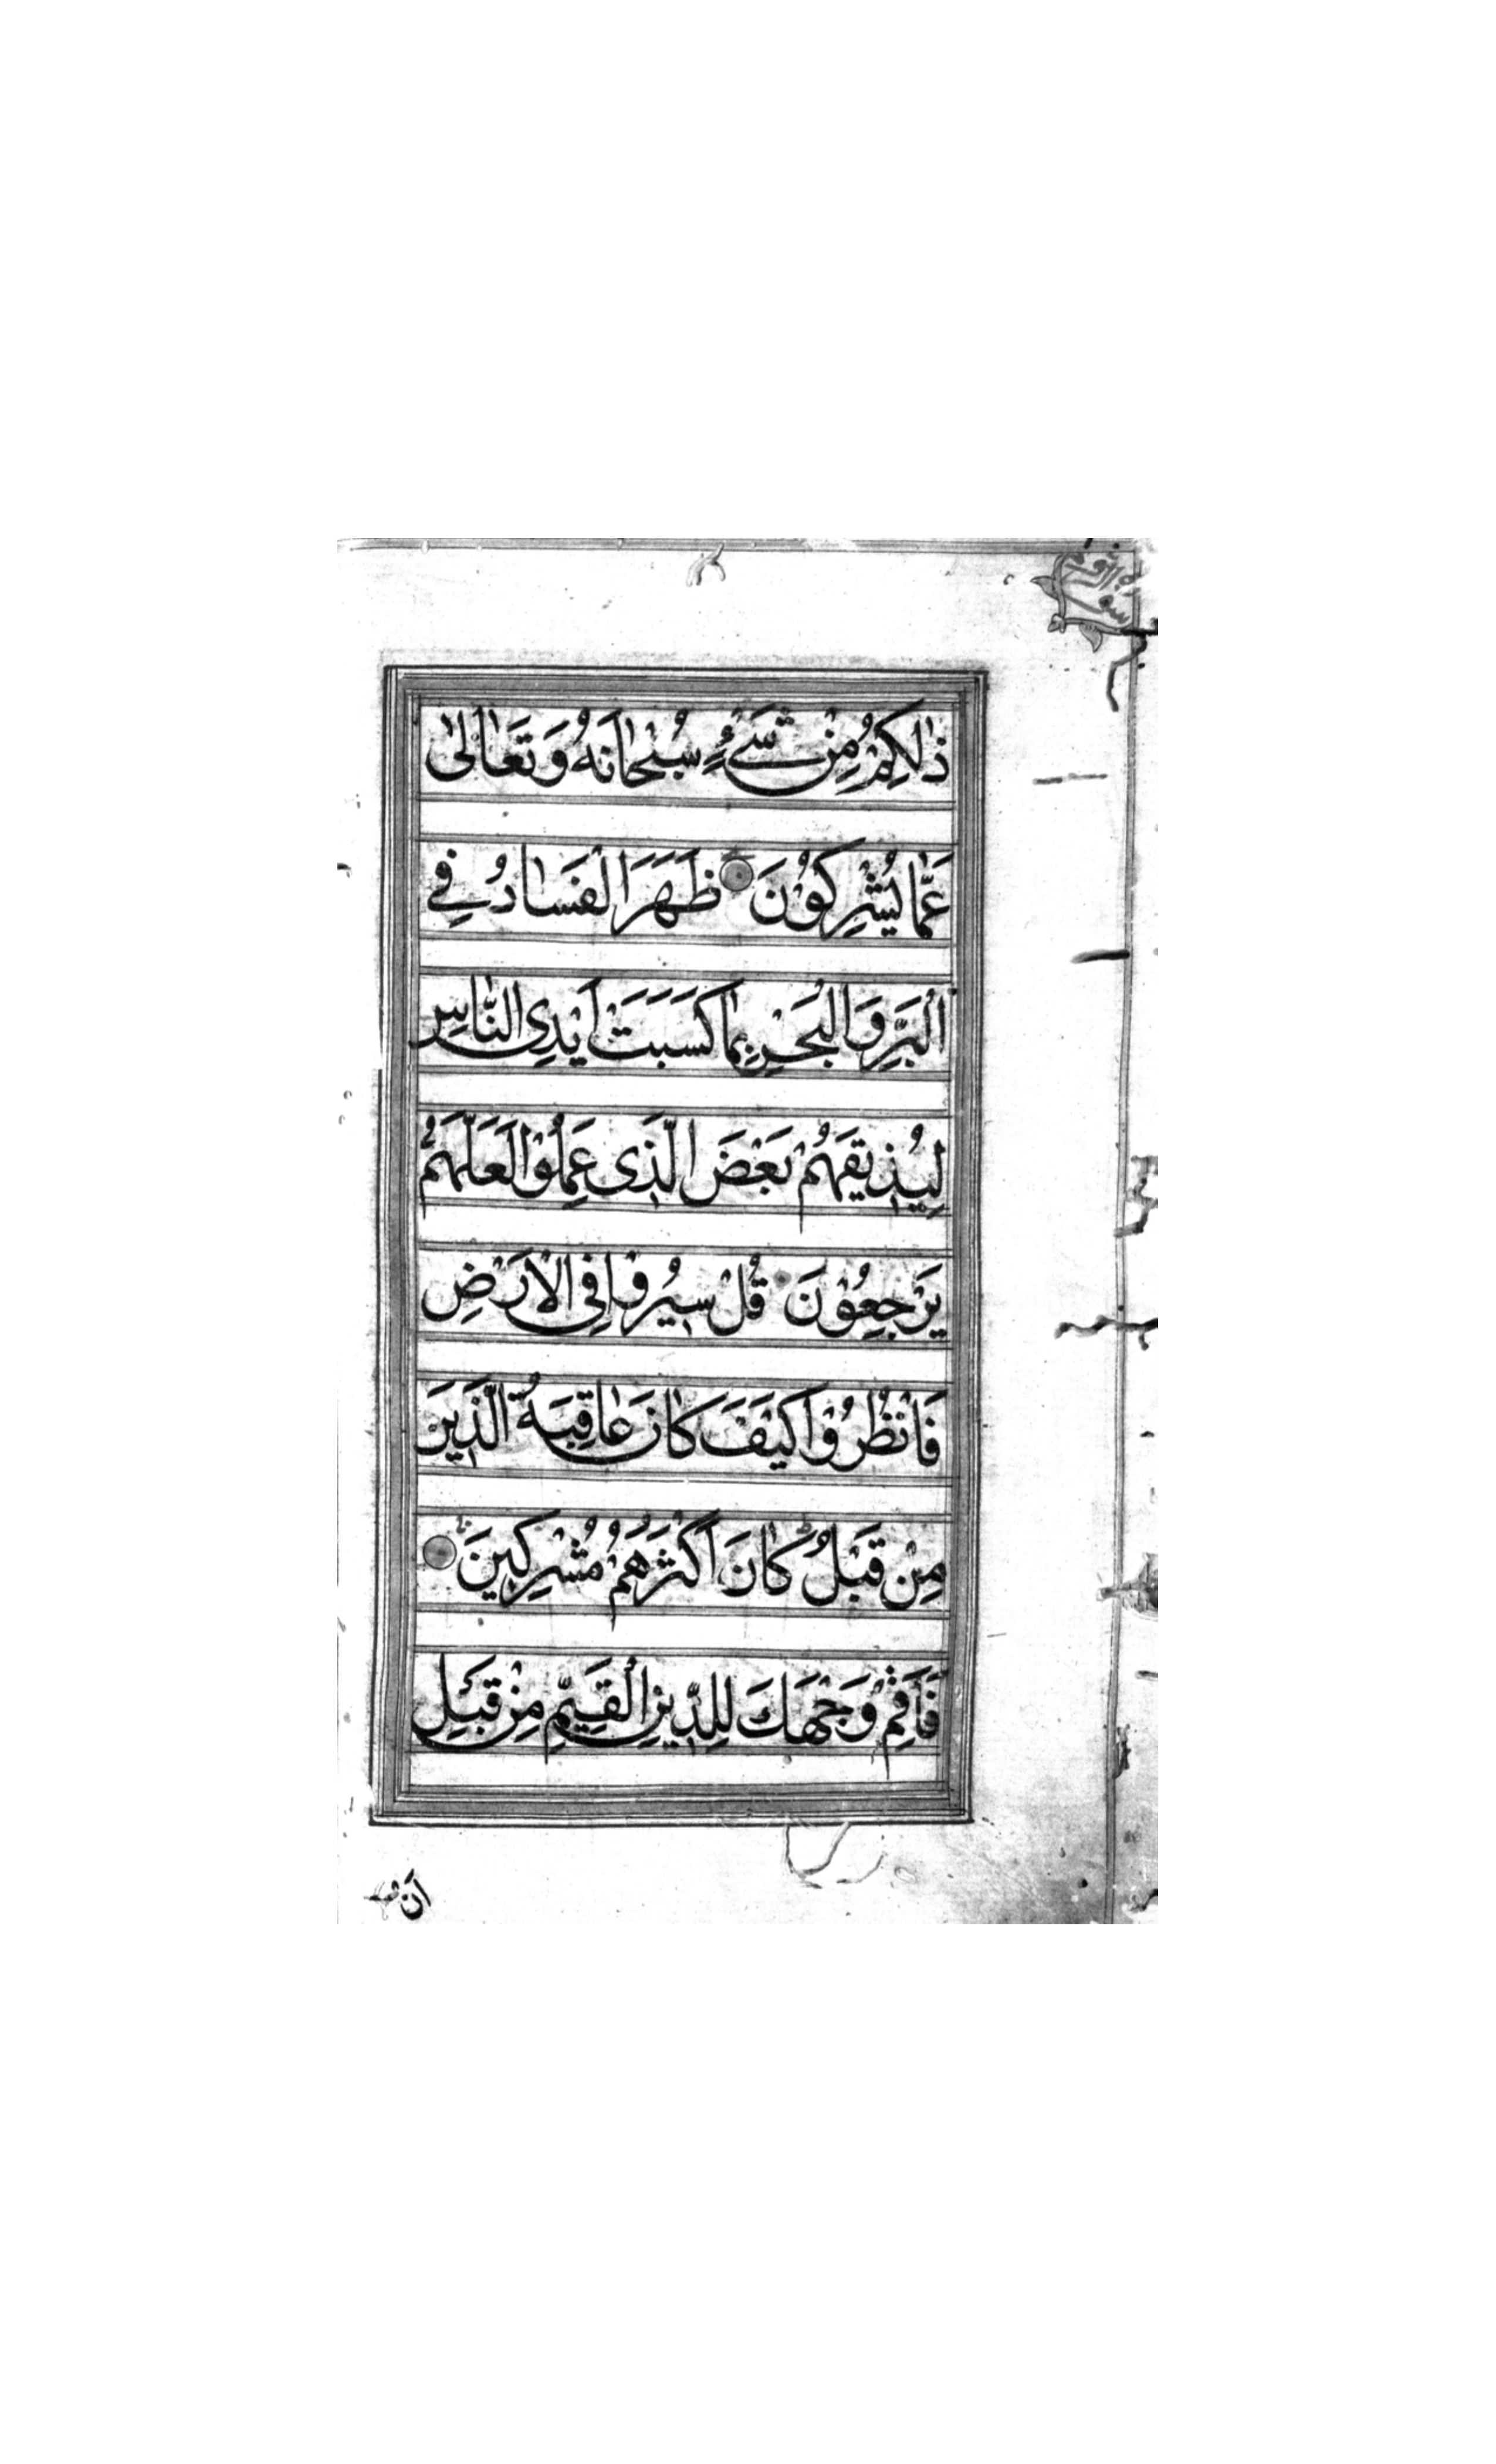 ذٰلِكُمْ مِنْ شَيْءٍ سُبْحٰانَهُ وَتَعٰالىٰ
عَمّٰا يُشْرِكُوْنَ ظَهَرَ الْفَسٰادُ فِي
الْبَرِّ وَالْبَحْرِ بِمٰا كَسَبَتْ اَيْدِى النّٰاسِ
لِيُذيقَهُمْ بَعْضَ الَّذى عَمِلُوْا لَعَلَّهُمْ
يَرْجِعُوْنَ قُلْ سيرُوْا فِى الْاَرْضِ
فَانْظُرُوْا كَيْفَ كٰانَ عٰاقِبَةُ الَّذينَ
مِنْ قَبْلُ كٰانَ اَكْثَرُهُمْ مُشْرِكينَ
فَاَقِمْ وَجْهَكَ لِلدّينِ الْقَيِّمِ مِنْ قَبْلِ
اَنْ